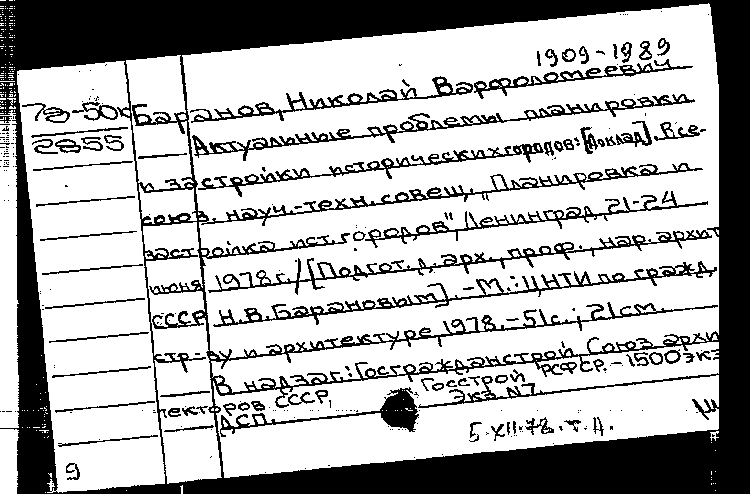 1909-1989
78-50к Баранов, Николай Варфоломеевич
2855 Актуальные проблемы планировки
и застройки исторических городов: [Доклад]. Все-
союз. науч.-техн. совещ. „Планировка и
застройка ист. городов", Ленинград, 21-24
июня 1978 г. / [Подгот. д. арх., проф., нар. архит
СССР Н.В. Барановым]. -М.: ЦНТИ по гражд.
стр-ву и архитектуре, 1978. - 51с.; 21см.
В надзаг.: Госгражданстрой, Союз архи
текторов СССР, Госстрой РСФСР. - 1500 экз
ДСП. Экз. N7.
5.XII.78. т. А.
9